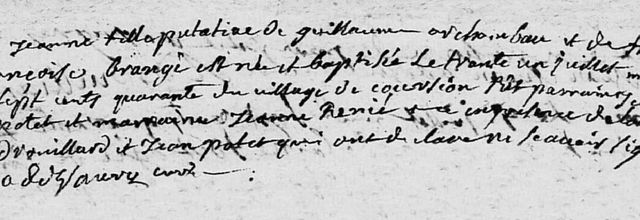 jeanne fille putative de guillaume archambau et de f
ançoise, brangé est née et baptisée Le trante un juillet m
sept cents quarante du village de coursion fût parrain
potet et marraine Jeanne René en presence de
drouillard et jean potet qui ont declare ne scavoir sig
curé